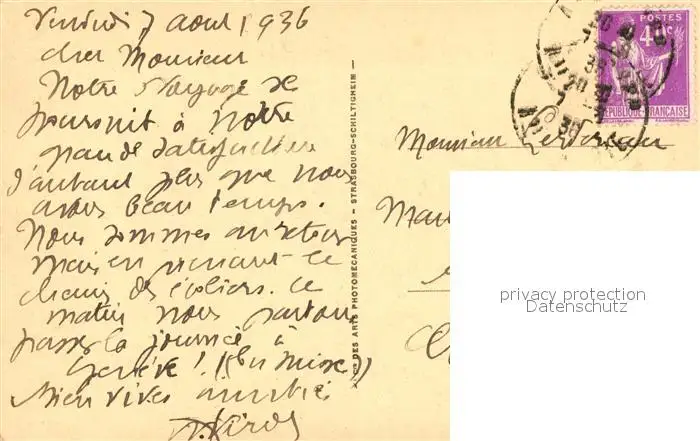 Vendredi 7 aout 1936
cher Monsieur
Notre Voyage se
poursuit à notre
grande satisfaction
d'autant plus que nous
avons beau temps.
Nous sommes au retour
mais en prenant le
chemin des écoliers. Ce
matin nous partons
passer la journée à
Genève! (En Suisse)
Bien vives amitiés
POSTES
40c
REPUBLIQUE FRANÇAISE
Monsieur
CIE DES ARTS PHOTOMECANIQUES - STRASBOURG-SCHILTIGHEIM -
privacy protection
Datenschutz